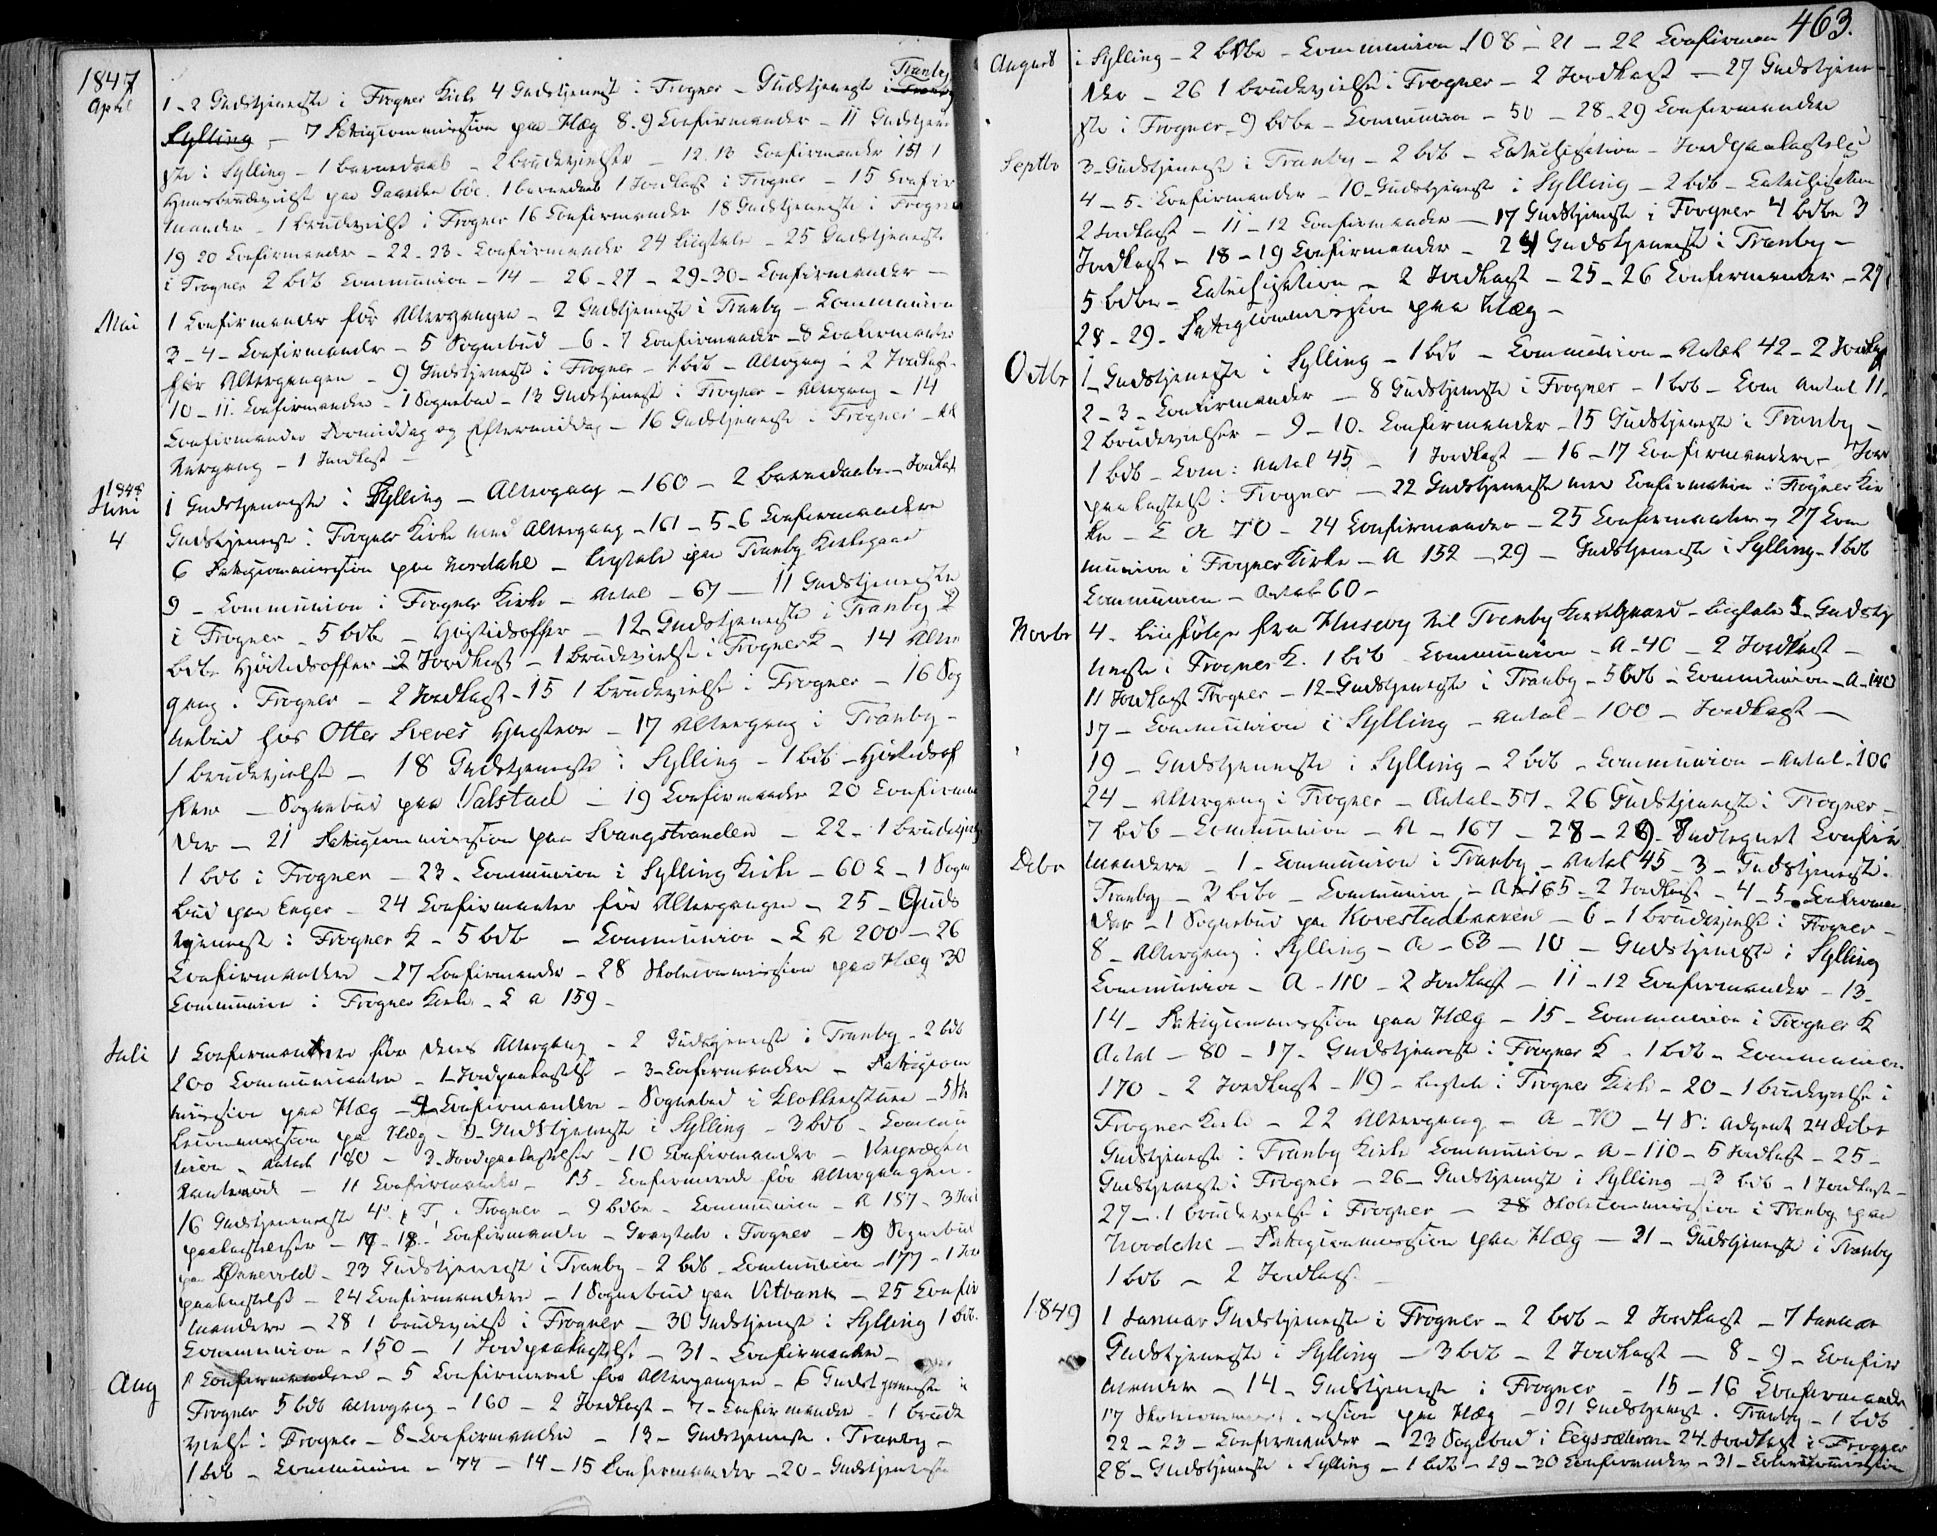 1847
April
1 - 2 Gudstjeneste i Frogner Kirke 4 Gudstjenest i Frogner - Gudstjeneste i Tranby
Sylling - 7 Fattigcommission paa Hæg 8-9 Confirmander - 11 Gudstjene
ste i Sylling - 1 Barnedaab - 2 Brudevielser - 12. 13 Confirmander 15 1
Huusbrudevielse paa 1 Barnedaab 1 Jordkast i Frogner - 15 Confir
mander - 1 Brudevielse i Frogner 16 Confirmander 18 Gudstjeneste i Frogner
19 20 Confirmander - 22-23- Confirmander 24 Liigtale - 25 Gudstjeneste
i Frogner 2 bdb Communion - 14 - 26-27-29-30- Confirmander -
Mai
1 Confirmander før Altergangen - 2 Gudstjeneste i Tranby - Communion
3-4- Confirmander - 5 Sognebud - 6-7 Confirmander - 8 Confirmander
før Altergangen - 9 Gudstjeneste i Frogner - 1 bdb - Altergang - 2 Jordkast -
10-11. Confirmander - 1 Sognebud - 13 Gudstjeneste i Frogner - Altergang - 14
Confirmander Formiddag og Eftermiddag - 16 Gudstjeneste i Frogner -
Altergang - 1 Jordkast -
1848
Juni
1 Gudstjeneste i Sylling - Altergang - 160 - 2 Barnedaabe - Jordkast
4
Gudstjeneste i Frogner Kirke med Altergang - 161 - 5-6 Confirmandere
6 Fattigcommission paa Nordahl - Liigtale paa Tranby Kirkegaard
9 - Communion i Frogner Kirke - Antal - 67 - 11 Gudstjeneste
i Frogner - 5 bdb - Høitidsoffer - 12 Gudstjeneste i Tranby 2
bdb. Høitidsoffer - 2 Jordkast - 1 Brudevielse i Frogner K - 14 Alter
gang i Frogner - 2 Jordkast - 15 1 Brudevielse i Frogner - 16 Sog
nebud hos Otter Sveres Hustroe - 17 Altergang i Tranby -
1 Brudevielse - 18 Gudstjeneste i Sylling - 1 bdb - Høitidsof
fer - Sognebud paa Valstad - 19 Confirmander 20 Confirman
der - 21 Fattigcommission paa Svangstranden - 22 - 1 Brudevielse
1 bdb i Frogner - 23 - Communion i Sylling Kirke - 60 C - 1 Sogne
bud paa Enger - 24 Confirmanter før Altergangen - 25 - Guds
tjeneste i Frogner K - 5 bdb - Communion - C A 200 - 26
Confirmander - 27 Confirmander - 28 Skolecommission paa Hæg 30
Communion i Frogner Kirke - C a 159 -
Juli
1 Confirmandere før deres Altergang - 2 Gudstjeneste i Tranby - 2 bdb
200 Communicanter - 1 Jordpaakastelse - 3 - Confirmander - Fattigcom
mission paa Hæg - 4 Confirmander - Sognebud i Klokkerstuen - 5 Sko
lecommission paa Hæg - 9 - Gudstjeneste i Sylling - 3 bdb - Commu
nion - Antal 180 - 3 - Jordpaakastelser - 10 Confirmander -
- 11 Confirmander - 15 - Confirmerede før Altergangen -
16 Gudstjeneste 4 p T i Frogner - 9 bdbe - Communion - A 187 - 3 Jord
paakastelser - 17 - 18 - Confirmander - Gravtale i Frogner - 19 Sognebud
paa Ørnevold - 23 Gudstjeneste i Tranby - 2 bdb - Communion - 177 - 1 Jord
paakastelse - 24 Confirmander - 1 Sognebud paa Vitbank - 25 Confir
mandere - 28 1 Brudevielse i Frogner - 30 Gudstjeneste i Sylling 1 bdb.
Communion - 150 - 1 Jordpaakastelse - 31 - Confirmander -
Aug
1 Confirmanderne - 5 Confirmered før Altergangen - 6 Gudstjeneste i
Frogner 5 bdb Altergang - 160 - 2 Jordkast - 7 - Confirmander - 1 Brude
vielse i Frogner - 8 - Confirmander - 13 - Gudstjeneste i Tranby -
1 bdb - Communion - 77 - 14 - 15 Confirmander - 20 - Gudstjeneste
463.
August
i Sylling - 2 bdbe - Communion 108 - 21 - 22 Confirman
der - 26 1 Brudevielse i Frogner - 2 Jordkast - 27 Gudstjene
ste i Frogner - 9 bdbe - Communion - 50 - 28-29 Confirmander
Septbr
3 - Gudstjeneste i Tranby - 2 bdb - Catechisation - Jordpaakastelse
4 - 5 - Confirmander - 10 - Gudstjeneste i Sylling - 2 bdb - Catechisation
2 Jordkast - 11 - 12 Confirmander - 17 Gudstjeneste i Frogner 4 bdbe 3
Jordkast - 18 - 19 Confirmander - 24 Gudstjeneste i Tranby -
5 bdbe - Catechisation - 2 Jordkast - 25 - 26 Confirmander - 27
28 - 29 - Fattigcommission paa Hæg -
Octbr
1 - Gudstjeneste i Sylling - 1 bdb - Communion - Antal 42 - 2 Jordkast
2 - 3 - Confirmander - 8 Gudstjeneste i Frogner - 1 bdb - Com Antal 11.
2 Brudevielser - 9 - 10. Confirmander - 15 Gudstjeneste i Tranby -
1 bdb - Com: Antal 45 - 1 Jordkast - 16 - 17 Confirmandere - Jord
paakastelse i Frogner - 22 Gudstjeneste med Confirmation i Frogner Kir
ke - C a 70 - 24 Confirmander - 25 Confirmander - 27 Com
munion i Frogner Kirke - A 152 - 29 - Gudstjeneste i Sylling - 1 bdb
Communion - Antal 60 -
Novbr
4 - Liigfølge fra Huseby til Tranby Kirkegaard - Liigtale 5 - Gudstje
neste i Frogner K. 1 bdb Communion - A - 40 - 2 Jordkast -
11 Jordkast Frogner - 12 - Gudstjeneste i Tranby - 5 bdb - Communion - A - 140
17 - Communion i Sylling - Antal - 100 - Jordkast -
19 - Gudstjeneste i Sylling - 2 bdb - Communion - Antal - 106
24 - Altergang i Frogner - Antal - 57 - 26 Gudstjeneste i Frogner -
7 bdb - Communion - A - 167 - 28 - 29 - Indtegnet Confir
Debr
mandere - 1 - Communion i Tranby - Antal 45 - 3 - Gudstjeneste i
Tranby - 3 bdbe - Communion - A 165 - 2 Jordkast - 4 - 5 - Confirman
der - 1 Sognebud paa Kovestadbakken - 6 - 1 Brudevielse i Frogner -
8 - Altergang i Sylling - A - 63 - 10 - Gudstjeneste i Sylling
Communion - A - 110 - 2 Jordkast - 11 - 12 Confirmander - 13 -
14 - Fattigcommission paa Hæg - 15 - Communion i Frogner K
Antal - 80 - 17 - Gudstjeneste i Frogner K - 1 bdb - Communion
170 - 2 Jordkast - 19 - Liigtale i Frogner Kirke - 20 - 1 Brudevielse i
Frogner Kirke - 22 Altergang - A - 70 - 4 S: Advent 24 Debr
Gudstjeneste i Tranby Kirke Communion - A - 110 - 5 Jordkast - 25 -
Gudstjeneste i Frogner - 26 - Gudstjeneste i Sylling - 3 bdb - 1 Jordkast -
27 - 1 Brudevielse i Frogner - 28 Skolecommission i Tranby paa
Nordahl - Fattigcommission paa Hæg - 31 - Gudstjeneste i Tranby
1 bdb - 2 Jordkast -
1849
1 Januar Gudstjeneste i Frogner - 2 bdb - 2 Jordkast - 7 Januar
Gudstjeneste i Sylling - 3 bdb - 2 Jordkast - 8 - 9 - Confir
mander - 14 - Gudstjeneste i Frogner - 15 - 16 Confirmander
17 Skolecommission paa Hæg - 21 Gudstjeneste i Tranby - 1 bdb
22 - 23 - Confirmander - 23 Sognebud i 24 - Jordkast i Frogner
28 - Gudstjeneste i Sylling - 1 bdb - 29 - 30 Confirmander - 31 -